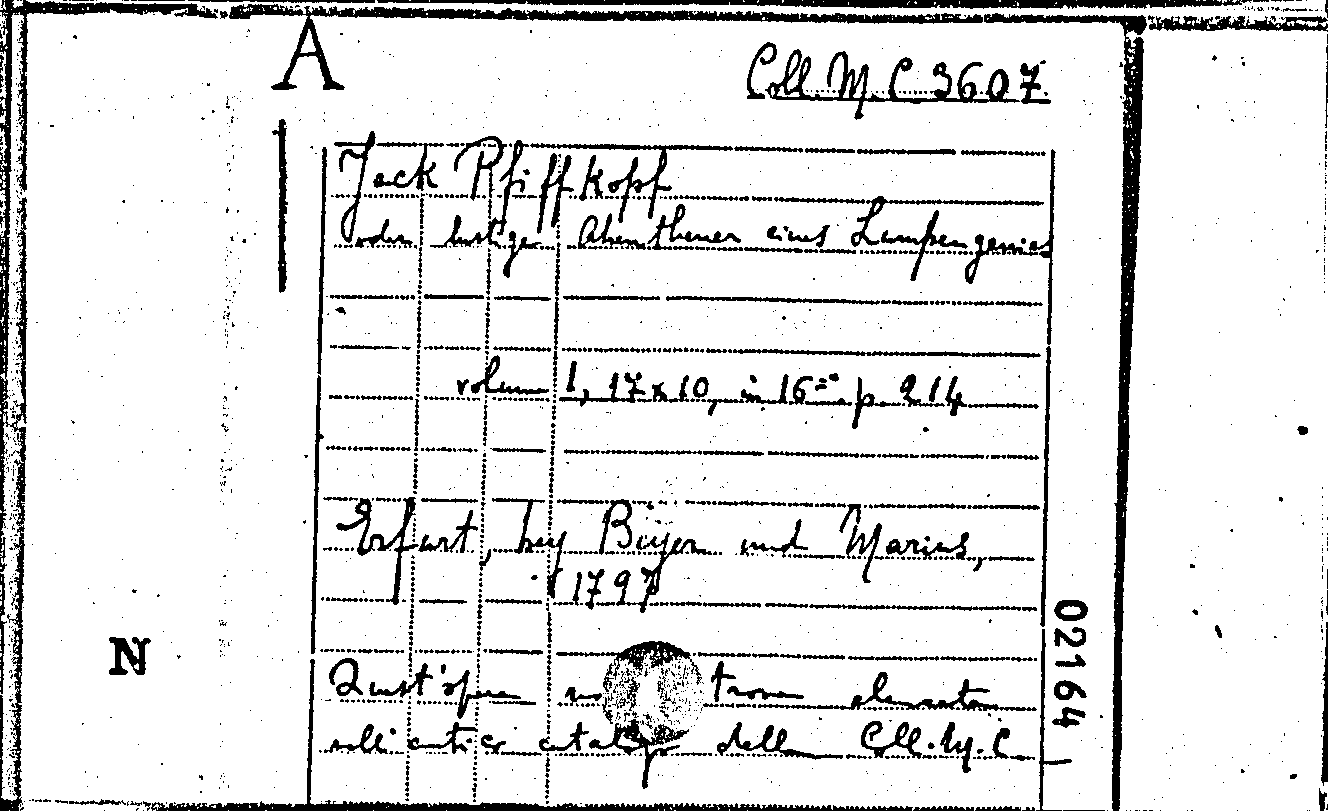 A
Coll. M. C 3607
Jack Pfiffkopf
oder lustige Abentheuer eines Lumpengenies
volume 1, 17x10, in 16° p. 214
Erfurt, bey Büyer und Marius,
1797
02164
N
Quest'opera trova elencata
nell'antico catalogo della Coll. M. C.